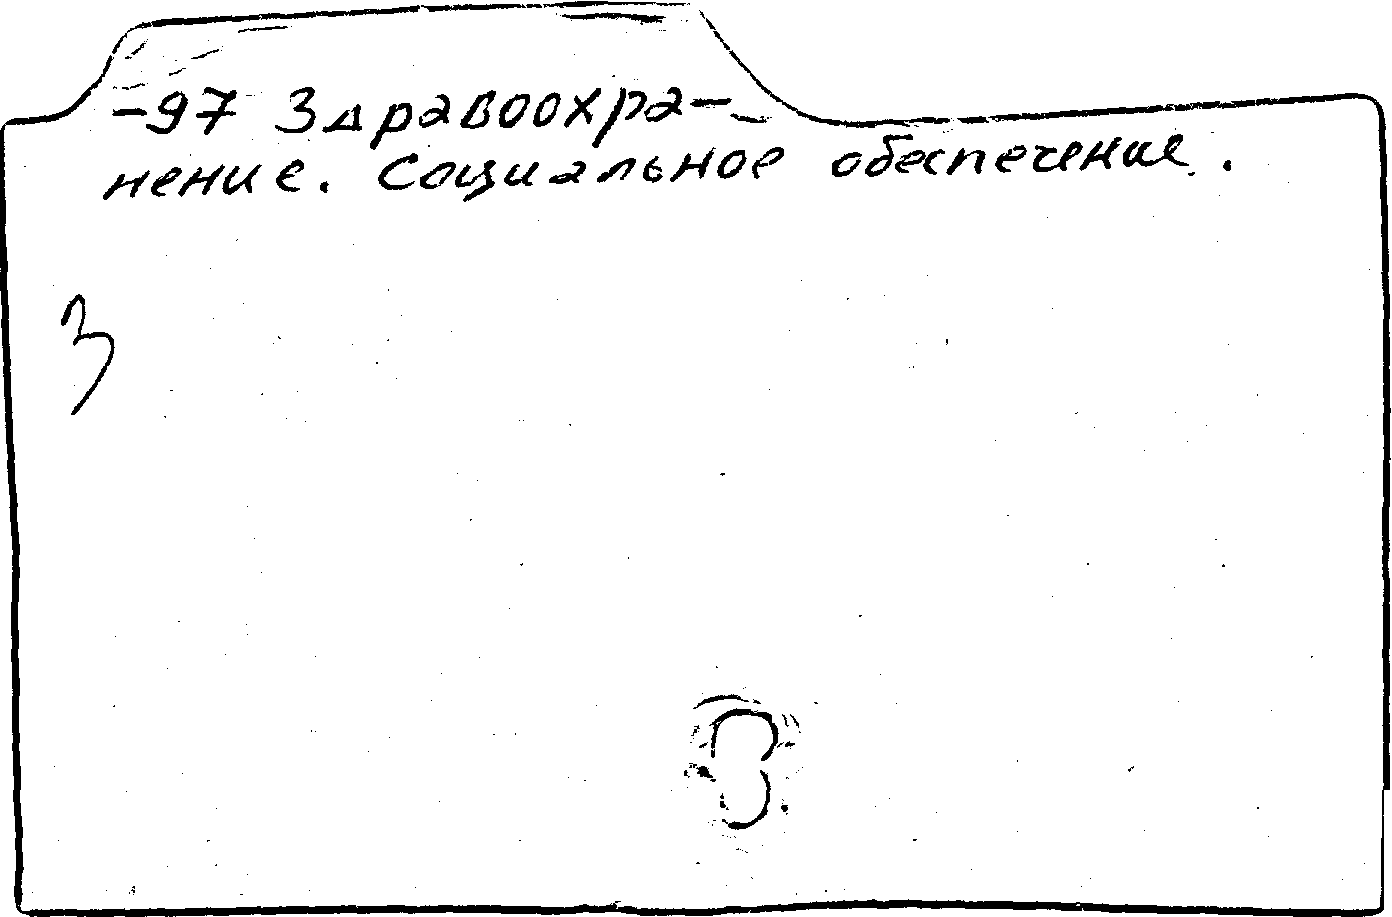 -97 Здравоохра-
нение. Социальное обеспечение.
З